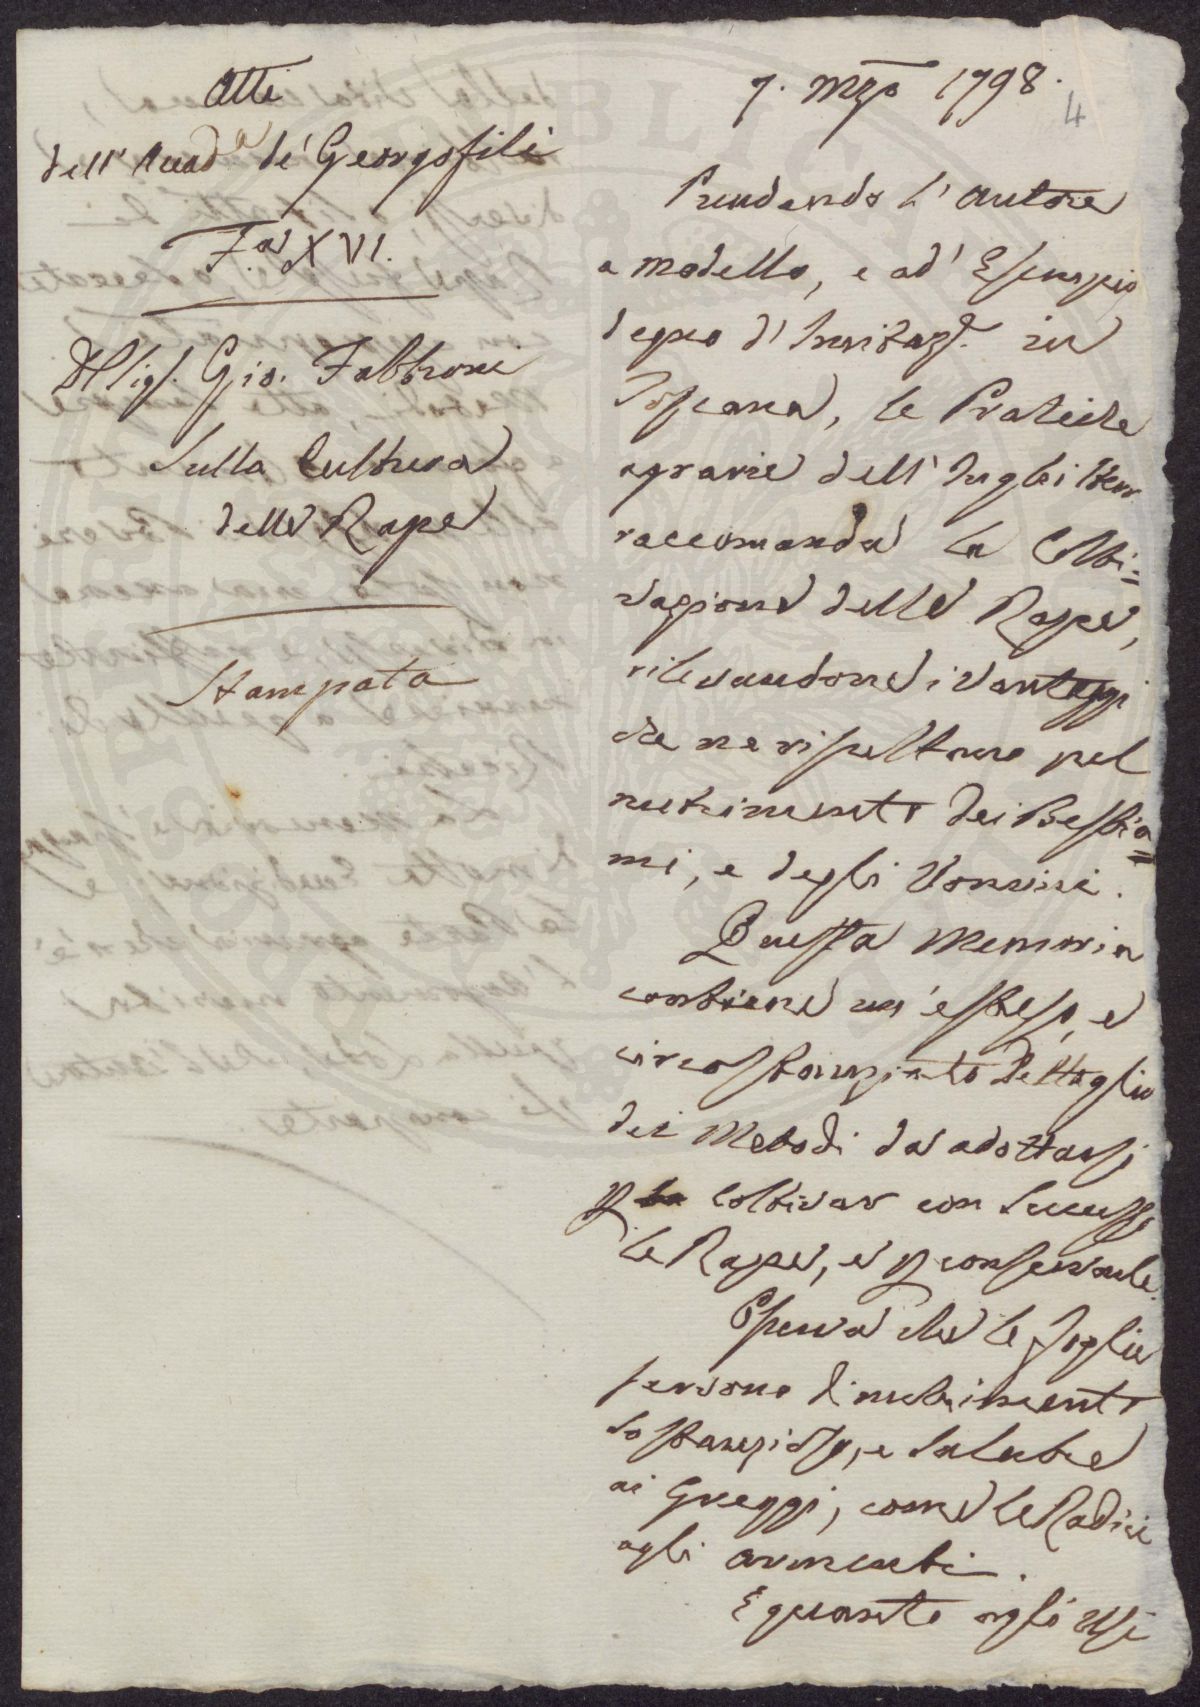 Atti
dell' Accad.a de' Georgofili
F.a XVI.
Del Sig.r Gio. Fabbroni
Sulla Cultura
delle Rape
Stampata
7. Mzo 1798.
4
Prendendo l' autore
a modello, e ad' Esempio
degno d' Imitaz.e in
Toscana, le Pratiche
agrarie dell' Inghilterr
raccomanda la Colti=
vazione delle Rape,
rilevandone i vantaggi
che ne risultano pel
nutrimento dei Bestia=
mi, e degli Uomini.
Questa Memoria
contiene un' esteso, e
circostanziato Dettaglio
dei Metodi da adottarsi
p coltivar con Successo
le Rape, e p conservarle.
Osserva che le foglie
servono di nutrimento
sostanzioso, e salubre
ai Greggi, come le Radici
agli armenti.
E quanto agli Usi